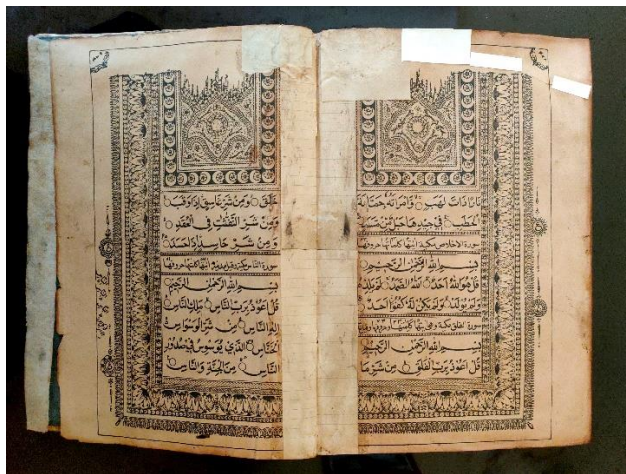 نارا ذات لهب وامراته حمالة
الحطب في جيدها حبل من مسد
سورة الاخلاص مكية
بسم الله الرحمن الرحيم
قل هو الله احد الله الصمد لم يلد
ولم يولد ولم يكن له كفوا احد
سورة الفلق مكية وهي
بسم الله الرحمن الرحيم
قل اعوذ برب الفلق من شر ما
خلق ومن شر غاسق اذا وقب
ومن شر النفثت في العقد
ومن شر حاسد اذا حسد
سورة الناس مكية
بسم الله الرحمن الرحيم
قل اعوذ برب الناس ملك الناس
اله الناس من شر الوسواس
الخناس الذي يوسوس في صدور
الناس من الجنة والناس